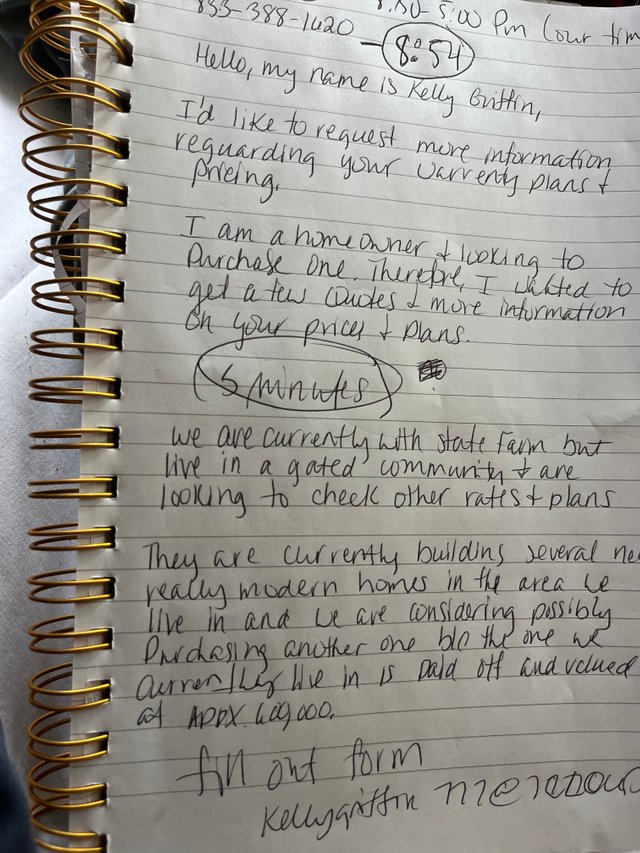 833-388-1420
8:30-5:00 Pm (our tim
- 8:54
Hello, my name is Kelly Griffin,
I'd like to request more information
reguarding your warrenty plans &
pricing.
I am a homeowner & looking to
purchase one. Therefore, I wanted to
get a few quotes & more information
on your prices & plans.
(5 minutes)
we are currently with state Farm but
live in a gated community & are
looking to check other rates & plans
They are currently building several ne
really modern homes in the area we
live in and we are considering possibly
purchasing another one b/c the one we
currently live in is paid off and valued
at appx. 600,000.
fill out form
Kellygriffin